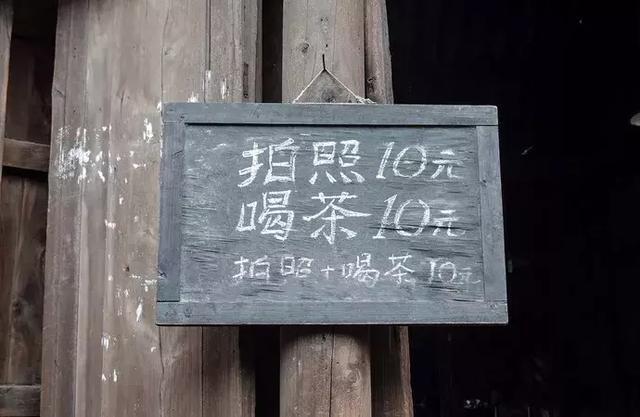 拍照 10元
喝茶 10元
拍照+喝茶 10元